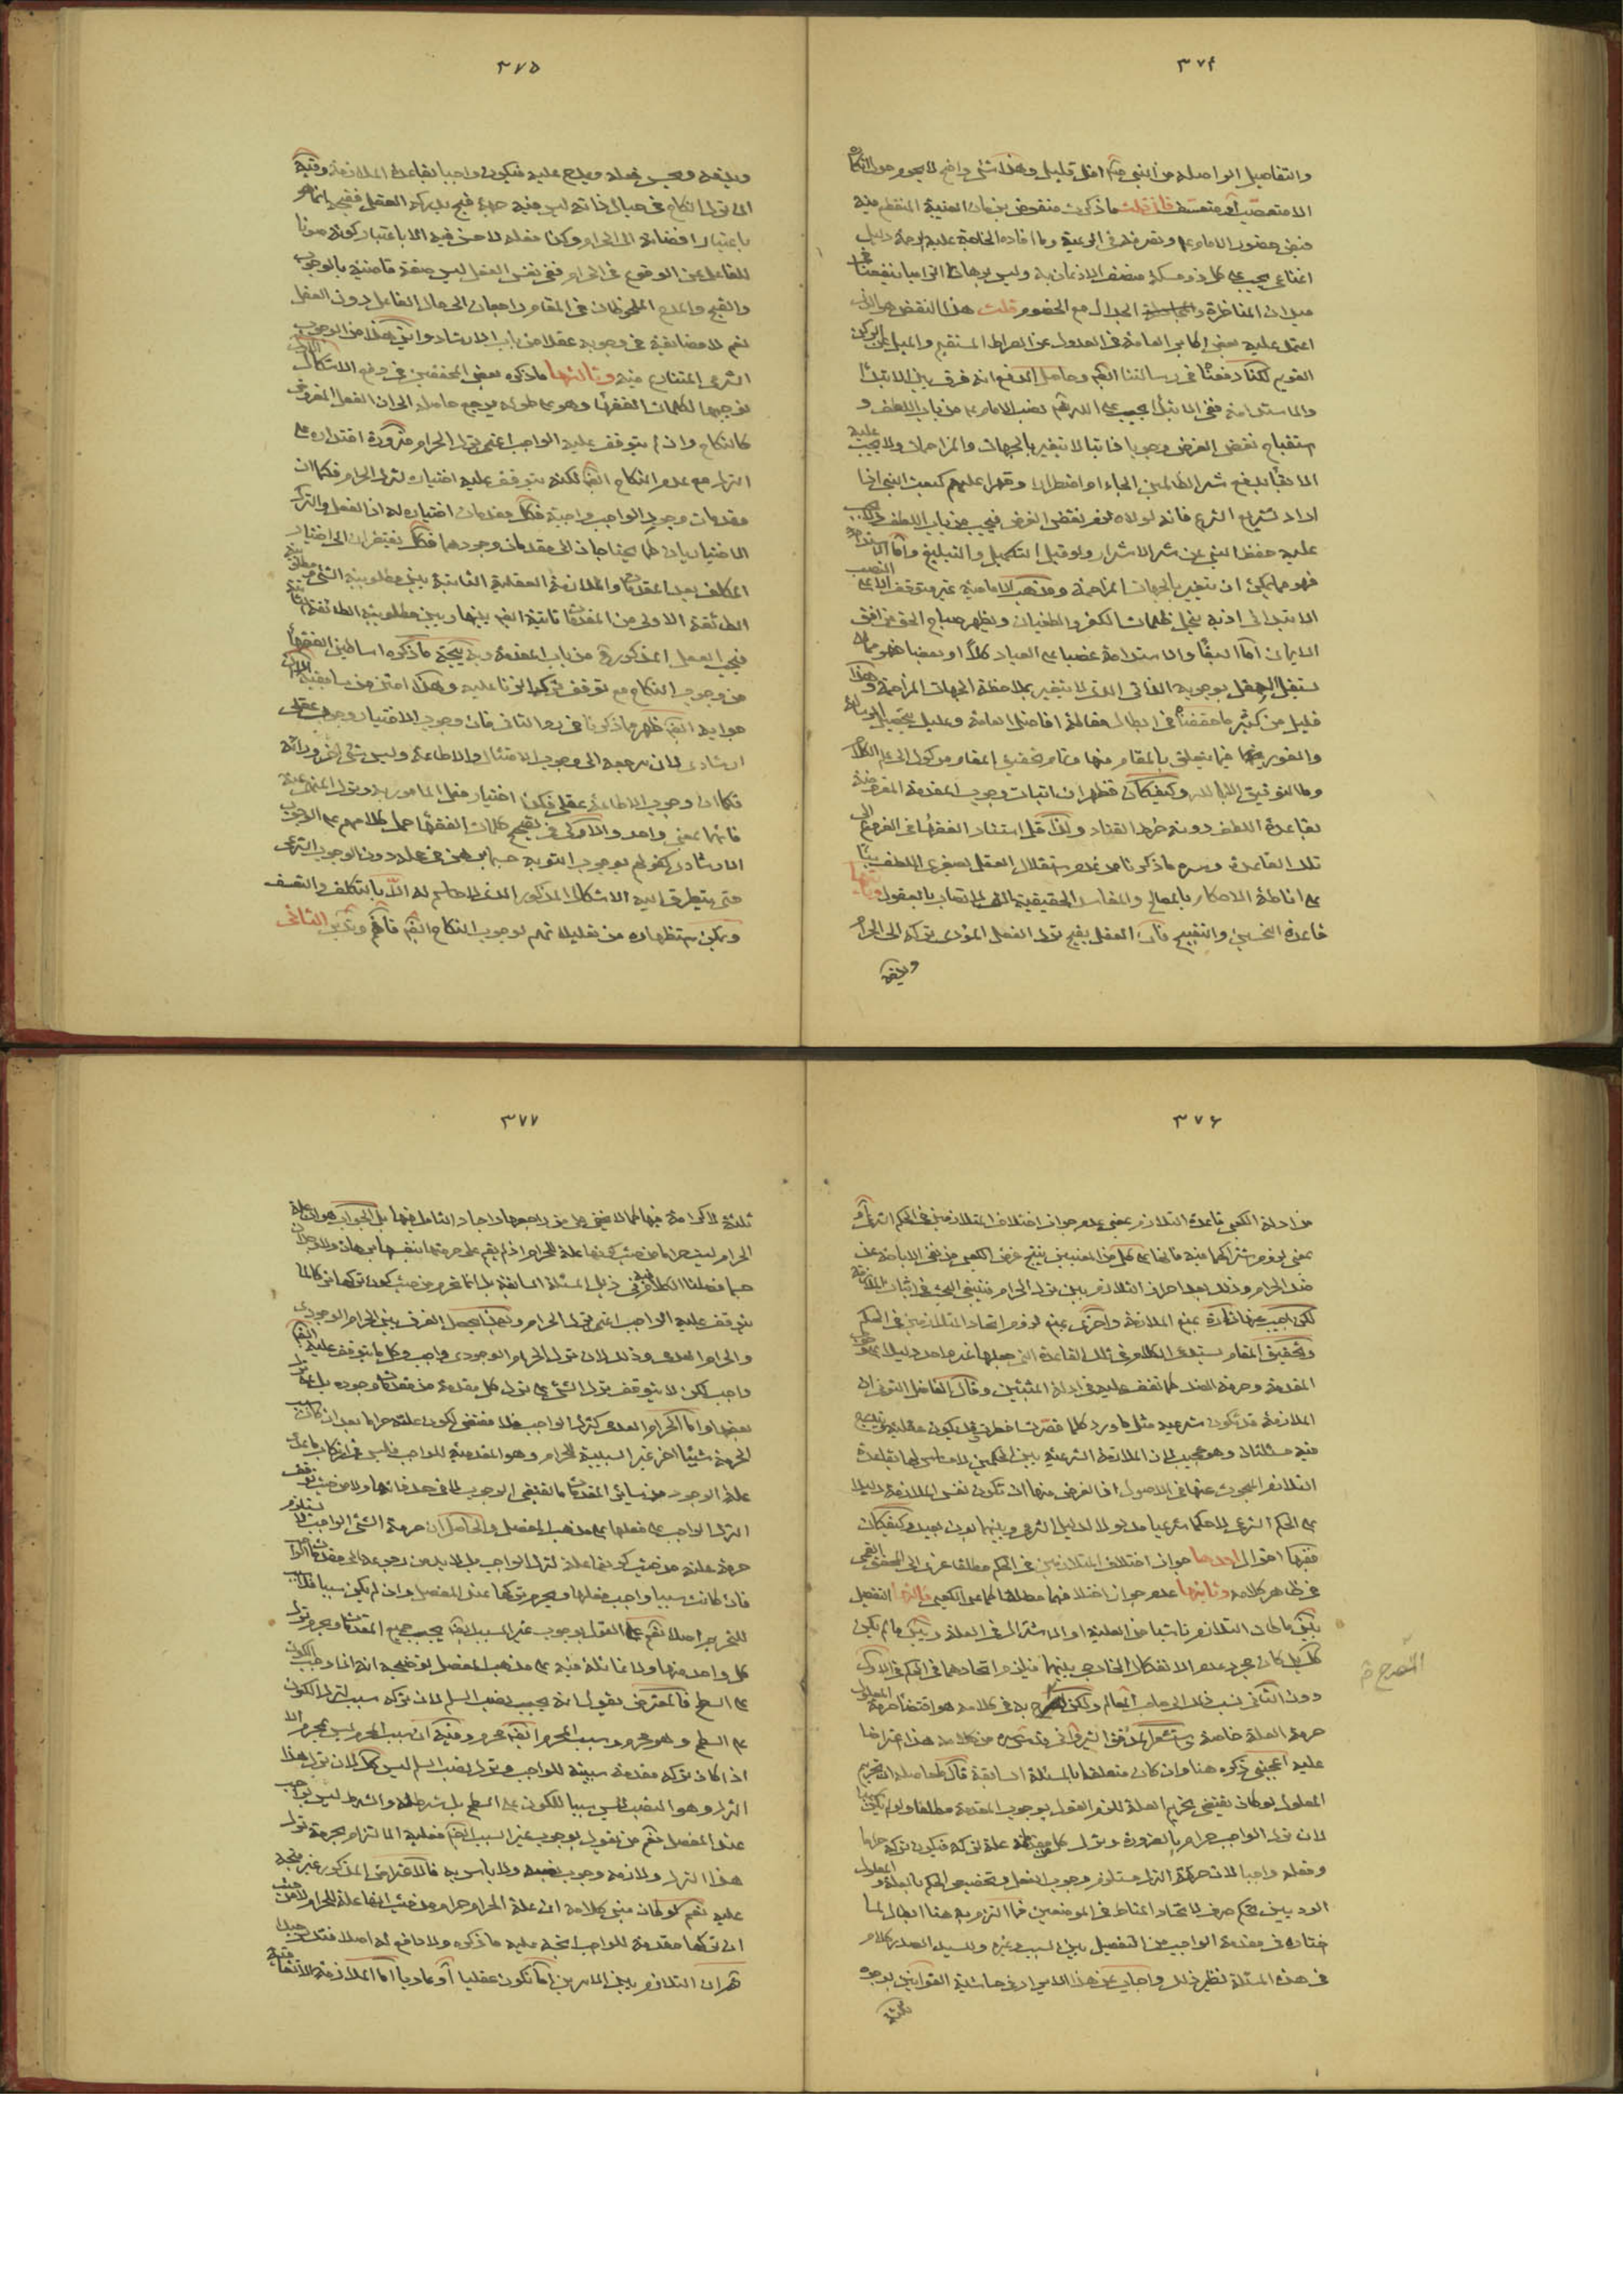 ٣٧٤
والتفاصيل الواصلة من النبي اقل قليل وهذا شئ واضح لا
الا متعصب او متعسف فان قلت ما ذكرت منقوض بزمان الغيبة المنقطع فيه
فيض حضور الامام وتصرفه في الرعية وما افاده
ميدان المناظرة الجدال مع الخصوم قلت هذا النقض هو الذي
اعتمد عليه بعض اكابر العامة في العدول عن الصراط المستقيم والميل عن الركن
القويم لكنا دفعنا في رسالتنا وحاصل الدفع انه فرق بين الابتداء
والاستدامة ففي الابتداء يجب على الله نصب الامام من باب اللطف و
استقباح نقض الغرض وجوبا ذاتيا لا يتغير بالجهات والمزاحمات ولا يجب عليه
الابقاء بدفع شر الظالمين الجاء او اضطرارا وقهرا عليهم كبعث النبي اذا
اراد تشريع الشرع فانه لولاه لزم نقض الغرض فيجب من باب اللطف
عليه حفظ النبي عن شر الاشرار ولو قبل التكميل والتبليغ واما
فهو مما يمكن ان يتغير بالجهات المزاحمة ومذهب الامامية غير متوقف
الابتدائي اذ به ينجلي ظلمات الكفر والطغيان ويظهر صباح الحق من افق
الايمان اما البقاء والاستدامة غصبا على العباد كلا او بعضا فهو مما لا
يستقل العقل بوجوبه الذاتي الذي لا يتغير بملاحظة الجهات المزاحمة وهذا
قليل من كثير ما حققناه في ابطال مقالة افاضل العامة وعليك بتحصيل الرسالة
والغور فيها فيما يتعلق بالمقام منها وتمام تحقيق المقام موكول الى علم الكلام
وما التوفيق الا بالله وكيف كان فظهر ان اثبات وجوب المقدمة
بقاعدة اللطف دونه خرط القتاد ولذا قل استناد الفقهاء في الفروع الى
تلك القاعدة وسره ما ذكرنا من عدم استقلال العقل بصغرى اللطف
على اناطة الاحكام بالمصالح والمفاسد الحقيقية
قاعدة التحسين والتقبيح فان العقل يقبح ترك الفعل المؤدي تركه الى الحرام
٣٧٥
الى ترك النكاح في حيال ذاته ليس فيه جهة قبح يدركه العقل فقبحه انما هو
باعتبار افضائه الى الحرام وكذا فعله لا حسن فيه الا باعتبار كونه صونا
للفاعل عن الوقوع في الحرام ففي نفس الفعل ليس صفة قاضية بالوجوب
والقبح والمدح الملحوظان في المقام راجعان الى حال الفاعل دون الفعل
نعم لا مضايقة في وجوبه عقلا من باب الارشاد واين هذا من الوجوب
الشرعي المتنازع فيه وثالثها ما ذكره بعض المحققين في دفع الاشكال
توجيها لكلمات الفقهاء وهو على طوله يرجع حاصله الى ان الفعل المفروض
كالنكاح وان لم يتوقف عليه الواجب اعني ترك الحرام ضرورة اقتداره على
الترك مع عدم النكاح لكنه يتوقف عليه اختيار ترك الحرام فكما ان
مقدمات وجود الواجب واجبة فكذا مقدمات اختياره اذ الفعل والترك
الاختياريان كما يحتاجان الى مقدمات وجودهما فكذا يفتقران الى اختيار
المكلف بعد المقدمات والملازمة العقلية الثابتة بين مطلوبية الشئ
الطائفة الاولى من المقدمات ثابتة بينها وبين مطلوبية الطائفة
فيجب العمل المذكور من باب المقدمة وبه يتجه ما ذكره اساطين الفقهاء
من وجوب النكاح مع توقف ترك الزنا عليه وهذا امتن من سابقيه
جوابه ظهر مما ذكرنا في رد الثاني فان وجوب الاختيار وجوب عقلي
ارشادي لان مرجعه الى وجوب الامتثال والاطاعة وليس شئ اخر ورائه
فكما ان وجوب الاطاعة عقلي فكذا اختيار فعل المامور به وترك المنهي عنه
فانهما بمعنى واحد والاولى في تصحيح كلمات الفقهاء حمل كلامهم على الوجوب
الارشادي كقولهم بوجوب التوبة حسبما برهن في محله دون الوجوب الشرعي
حتى يتطرق اليه الاشكال المذكور الذي لا حاسم له الا بالتكلف والتعسف
ويمكن استظهاره من تعليله لوجوب النكاح فافهم وتدبر الثاني
٣٧٦
من ادلة الكعبي قاعدة التلازم بمعنى عدم جواز اختلاف المتلازمين في الحكم
بمعنى لزوم اشتراكهما فيه فانها على كل من المعنيين ينتج غرض الكعبي من نفي الاباحة عن
ضد الحرام وذلك بعد احراز التلازم بين ترك الحرام
لكن اجيب عنها تارة بمنع الملازمة واخرى بمنع لزوم اتحاد المتلازمين في الحكم
وتحقيق المقام يستدعي الكلام في تلك القاعدة التي جعلها غير واحد دليلا على وجوب
المقدمة وحرمة الضد كما تقف عليه في ادلة المثبتين وقال الفاضل التوني ان
الملازمة قد تكون شرعية مثل ما ورد كلما قصرت افطرت وقد يكون عقلية
فيه مسئلتان وهو عجيب لان الملازمة الشرعية بين الحكمين لا مساس لها بقاعدة
التلازم المبحوث عنها في الاصول اذ الغرض منها ان تكون نفس الملازمة دليلا
على الحكم الشرعي لا حكما شرعيا مدلولا لدليل الشرع وبينهما بون بعيد وكيف كان
ففيها اقوال احدها جواز اختلاف المتلازمين في الحكم مطلقا عزى الى المحقق القمي
في ظاهر كلامه وثانيها عدم جواز اختلافهما مطلقا كما عن الكعبي ثالثها التفصيل
بين ما كان التلازم ناشيا من العلية او الاشتراك في العلة وبين ما لم يكن
كك بل كان مجرد عدم الانفكاك الخارجي بينهما فيلزم اتحادهما في الحكم في الاول
دون الثاني نسب ذلك الى صاحب المعالم ولكن المصرح به في كلامه هو اقتضاء حرمة المعلول
حرمة العلة خاصة
عليه اعجبني ذكره هنا وان كان متعلقا بالمسئلة السابقة قال ما حاصله ان تحريم
المعلول لو كان يقتضي تحريم العلة للزم القول بوجوب المقدمة مطلقا ولو لم تكن سببا
لان ترك الواجب حرام بالضرورة وترك كل مقدمة علة لتركه فيكون تركه حراما
وفعله واجبا لان حرمة الترك مستلزم وجوب الفعل وتخصيص الحكم بالعلة والمعلول
الوجوديين تحكم صرف لاتحاد المناط في الموضعين فما التزم به هنا ابطال لما
اختاره في مقدمة الواجب من التفصيل بين السبب وغيره وللسيد الصدر كلام
في هذه المسئلة نظير ذلك واجاب عن هذا الايراد في حاشية القوانين بوجوه
المصرح
٣٧٧
ثلثة لا كرامة فيها كما لا يخفى على من راجعها واجاد التامل فيها بل الجواب هو ان علة
الحرام ليست حراما من حيث كونها علة للحرام اذ لم يقم على حرمتها بنفسها برهان ولا وجدان
حسبما فصلنا الكلام فيه في ذيل المسئلة السابقة بل انما تحرم من حيث كون تركها
يتوقف عليه الواجب اعني ترك الحرام وبهذا يحصل الفرق بين الحرام الوجودي
والحرام العدمي وذلك لان ترك الحرام الوجودي واجب وكل ما يتوقف عليه
واجب لكن لا يتوقف ترك الشئ على ترك كل مقدمة من مقدمات وجوده بل على ترك
بعضها واما الحرام العدمي كترك الواجب فلا مقتضي لكون علته حراما بعد ان كان سبب
الحرمة شيئا اخر غير السببية للحرام وهو المقدمية للواجب
علة الوجود من سائر المقدمات ما يقتضي الوجوب لا في حد ذاتها ولا من حيث توقف
الترك الواجب على فعلها على مذهب المفصل والحاصل ان حرمة الشئ الواجب لا يستلزم
حرمة علته من حيث كونها علة لترك الواجب بل لا بد من رجوعه الى مقدمات الواجب
فان كانت سببا واجب فعلها ويحرم تركها عند المفصل وان لم يكن سببا فلا سبب
للتحريم اصلا نعم على القول بوجوب غير السبب يجب جميع المقدمات ويحرم ترك
كل واحد منها ولا غائلة فيه على مذهب المفصل توضيحه انه اذا وجب الكون
على السطح فالمعترض يقول انه يجب نصب السلم لان تركه سبب لترك الكون
على السطح وهو محرم وسبب المحرم محرم وفيه ان سبب المحرم ليس بمحرم الا
اذا كان تركه مقدمة سببية للواجب وترك نصب السلم ليس كك لان ترك هذا
الترك وهو النصب ليس سببا للكون على السطح بل شرط له والشرط ليس بواجب
عند المفصل نعم من يقول بوجوب غير السبب فعليه الالتزام بحرمة ترك
هذا الترك ولازمه وجوب نصبه ولا باس به فالاعتراض المذكور غير متجه
عليه نعم لو كان مبنى كلامه ان علة الحرام حرام من حيث انها علة للحرام لا من حيث
ان تركها مقدمة للواجب اتجه عليه ما ذكروه ولا دافع له اصلا فتدبر جيدا
ثم ان التلازم بين الامرين اما تكون عقليا او عاديا اما الملازمة الاتفاقية